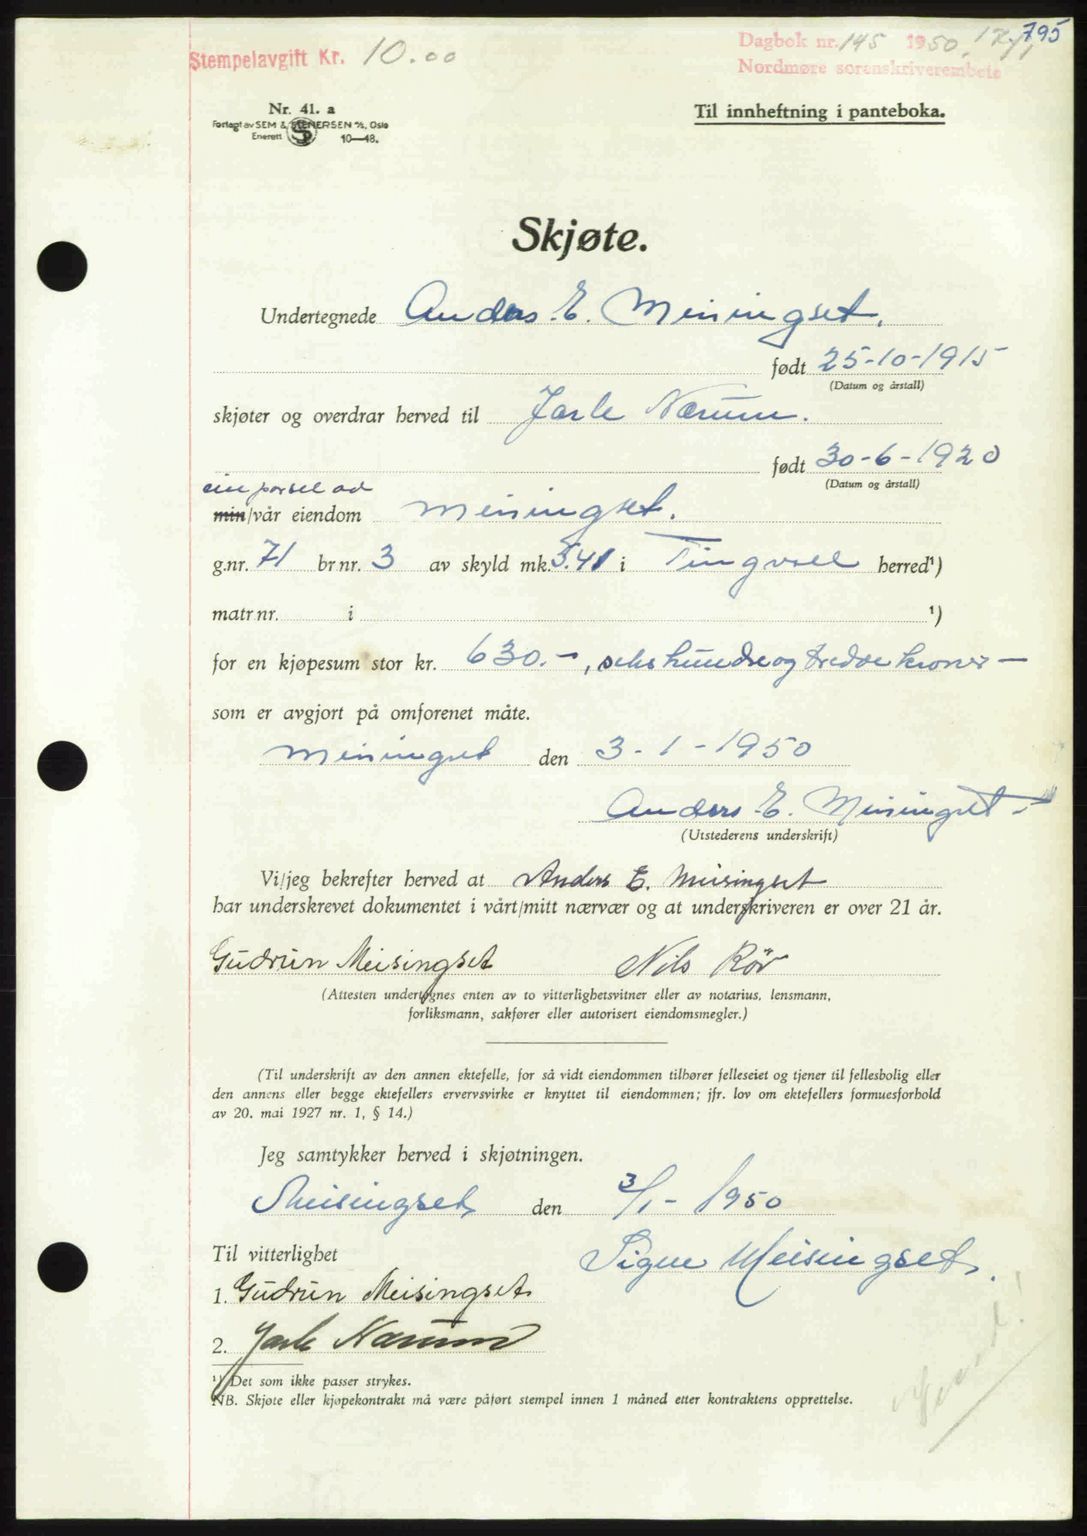 795
Stempelavgift Kr. 10.00
Dagbok nr. 145 1950, 12/1
Nordmøre sorenskriverembete
Nr. 41. a
Forlagt av SEM & STENERSEN A/S, Oslo
Enerett 10—48.
Til innheftning i panteboka.
Skjøte.
Undertegnede Anders E. Meisingset.
født 25-10-1915
(Datum og årstall)
skjøter og overdrar herved til Jarle Nærum.
født 30-6-1920
(Datum og årstall)
ein parsel av
min/vår eiendom Meisingset.
g.nr. 71 br.nr. 3 av skyld mk. 5.41 i Tingvoll herred¹)
matr.nr. i ¹)
for en kjøpesum stor kr. 630.-, sekshundreogtredve kroner —
som er avgjort på omforenet måte.
Meisingset den 3-1-1950
Anders E. Meisingset
(Utstederens underskrift)
Vi/jeg bekrefter herved at Anders E. Meisingset
har underskrevet dokumentet i vårt/mitt nærvær og at underskriveren er over 21 år.
Gudrun Meisingset Nils Röv
(Attesten undertegnes enten av to vitterlighetsvitner eller av notarius, lensmann,
forliksmann, sakfører eller autorisert eiendomsmegler.)
(Til underskrift av den annen ektefelle, for så vidt eiendommen tilhører felleseiet og tjener til fellesbolig eller
den annens eller begge ektefellers ervervsvirke er knyttet til eiendommen; jfr. lov om ektefellers formuesforhold
av 20. mai 1927 nr. 1, § 14.)
Jeg samtykker herved i skjøtningen.
Meisingset den 3/1- 1950
Til vitterlighet Signe Meisingset.
1. Gudrun Meisingset
2. Jarle Nærum
¹) Det som ikke passer strykes.
NB. Skjøte eller kjøpekontrakt må være påført stempel innen 1 måned etter kontraktens opprettelse.